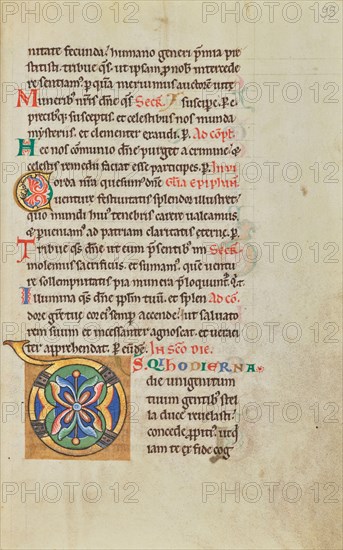 93
nitate fecunda. humano generi p̄mia pre
stitisti. tribue q̄s. ut ipsam p̄ nob̄ intercede
re sentiam᷒. p̄ quā meruimus auctorē uite
Munerib; nr̄is dn̄e q̄s Secr̄. suscipe. P. e
p̄cib; q̄s susceptis. et celestibus nos munda
mysteriis. et clementer exaudi. p. Ad cōpl.
Hec nos cōmunio dn̄e purget a crimine. &
celestis remedii faciat esse participes. p. In vi
Corda nr̄a quesum᷒ dn̄e Gl̄ia epiphan̄
uenture festiuitatis splendor illustret.
quo mundi hui᷒ tenebris carere ualeamus.
& p̄ueniam᷒ ad patriam claritatis eterne. p.
Tribue q̄s dn̄e ut eum p̄sentib; im Secr̄.
molemus sacrificiis. et sumam᷒. quē uentu
re sollempnitatis pia munera p̄loquunt᷑. Q.
Illumina q̄s dn̄e pp̄lm tuum. et splen Ad cō.
dore gr̄e tue cor ei᷒ semp accende. ut saluato
rem suum et incessanter agnoscat. et ueraci
ter apprehendat. P. eundē. In sc̄o die.
DS. Qui HODIERNA
die unigenitum
tuum gentib; stel
la duce reuelasti.
concede p̄piti᷒. ut q
iam te ex fide cog